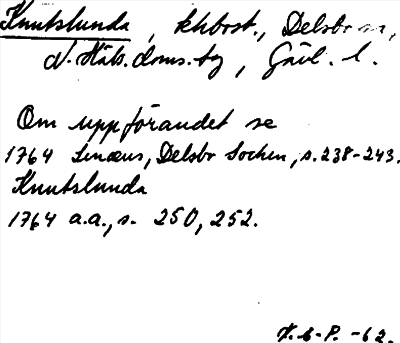 Knutslunda, khbost., Delsbo sn,
N. Häls. doms.by, Gävl. l.
Om uppförandet se
1764 Lenæus, Delsbo Socken, s. 238-243.
Knutslunda
1764 a.a., s. 250, 252.
-62.